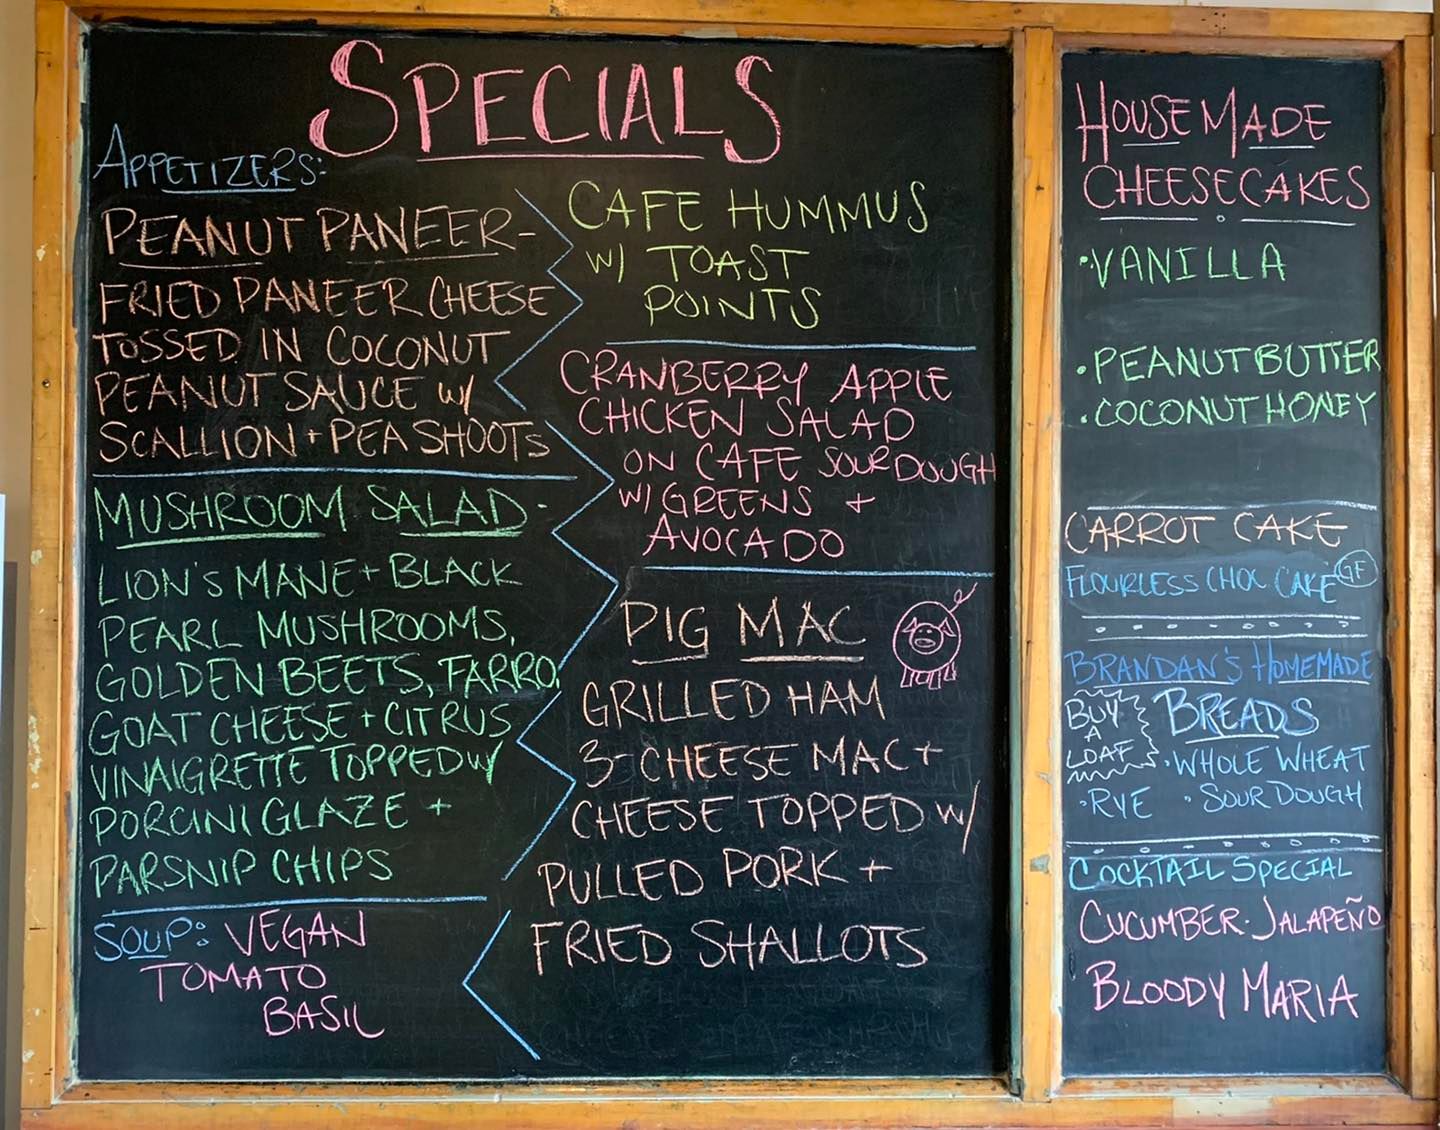 SPECIALS
APPETIZERS:
PEANUT PANEER-
FRIED PANEER CHEESE
TOSSED IN COCONUT
PEANUT SAUCE W/
SCALLION + PEA SHOOTS
MUSHROOM SALAD-
LION'S MANE + BLACK
PEARL MUSHROOMS,
GOLDEN BEETS, FARRO,
GOAT CHEESE + CITRUS
VINAIGRETTE TOPPED W/
PORCINI GLAZE +
PARSNIP CHIPS
SOUP: VEGAN
TOMATO
BASIL
CAFE HUMMUS
W/ TOAST
POINTS
CRANBERRY APPLE
CHICKEN SALAD
ON CAFE SOURDOUGH
W/ GREENS +
AVOCADO
PIG MAC
GRILLED HAM
3-CHEESE MAC +
CHEESE TOPPED W/
PULLED PORK +
FRIED SHALLOTS
HOUSE MADE
CHEESECAKES
• VANILLA
• PEANUT BUTTER
• COCONUT HONEY
CARROT CAKE
FLOURLESS CHOC CAKE GF
BRANDAN'S HOMEMADE
BREADS
BUY
A
LOAF
• WHOLE WHEAT
• RYE • SOUR DOUGH
COCKTAIL SPECIAL
CUCUMBER-JALAPEÑO
BLOODY MARIA